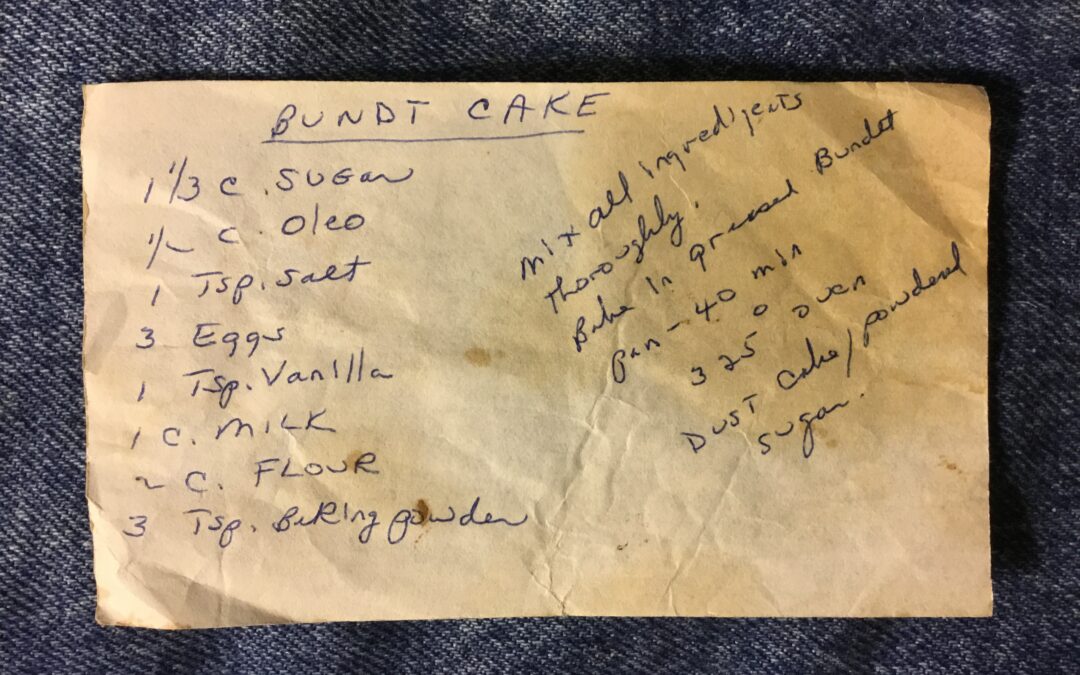 BUNDT CAKE
1 1/3 C. SUGAR
1/2 C. Oleo
1 Tsp. Salt
3 Eggs
1 Tsp. Vanilla
1 C. MILK
2 C. FLOUR
3 Tsp. Baking powder
Mix all ingredigents
thoroughly.
Bake in greased Bundet
pan - 40 min
325° oven
DUST Cake/powdered
sugar.